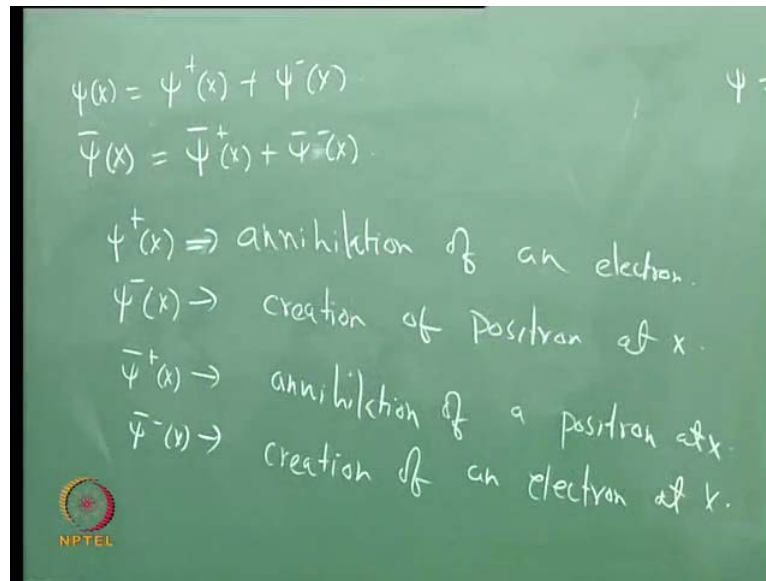 ψ(x) = ψ⁺(x) + ψ⁻(x)
ψ =
ψ̄(x) = ψ̄⁺(x) + ψ̄⁻(x).
ψ⁺(x) ⇒ annihilation of an electron.
ψ⁻(x) → creation of positron at x.
ψ̄⁺(x) → annihilation of a positron at x.
ψ̄⁻(x) → creation of an electron at x.
NPTEL